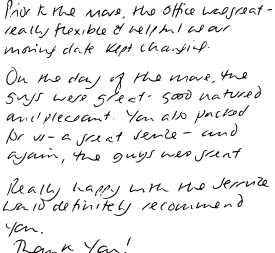 Prior to the move, the office was great -
really flexible & helpful as our
moving date kept changing.
On the day of the move, the
guys were great - good natured
and pleasant. You also packed
for us - a great service - and
again, the guys was great
Really happy with the service
would definitely recommend
you.
Thank You!